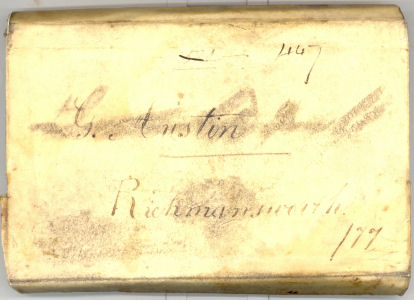 447
G. Austin
Rickmansworth
177